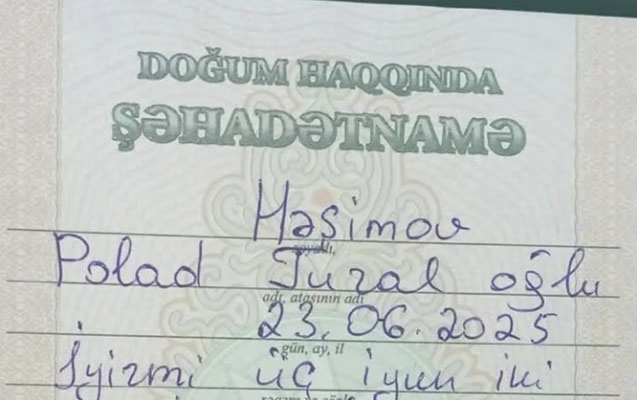 DOĞUM HAQQINDA
ŞƏHADƏTNAMƏ
Həşimov
soyadı,
Polad Tural oğlu
adı, atasının adı
23.06.2025
gün, ay, il
İyirmi üç iyun iki
rəqəm və sözlə